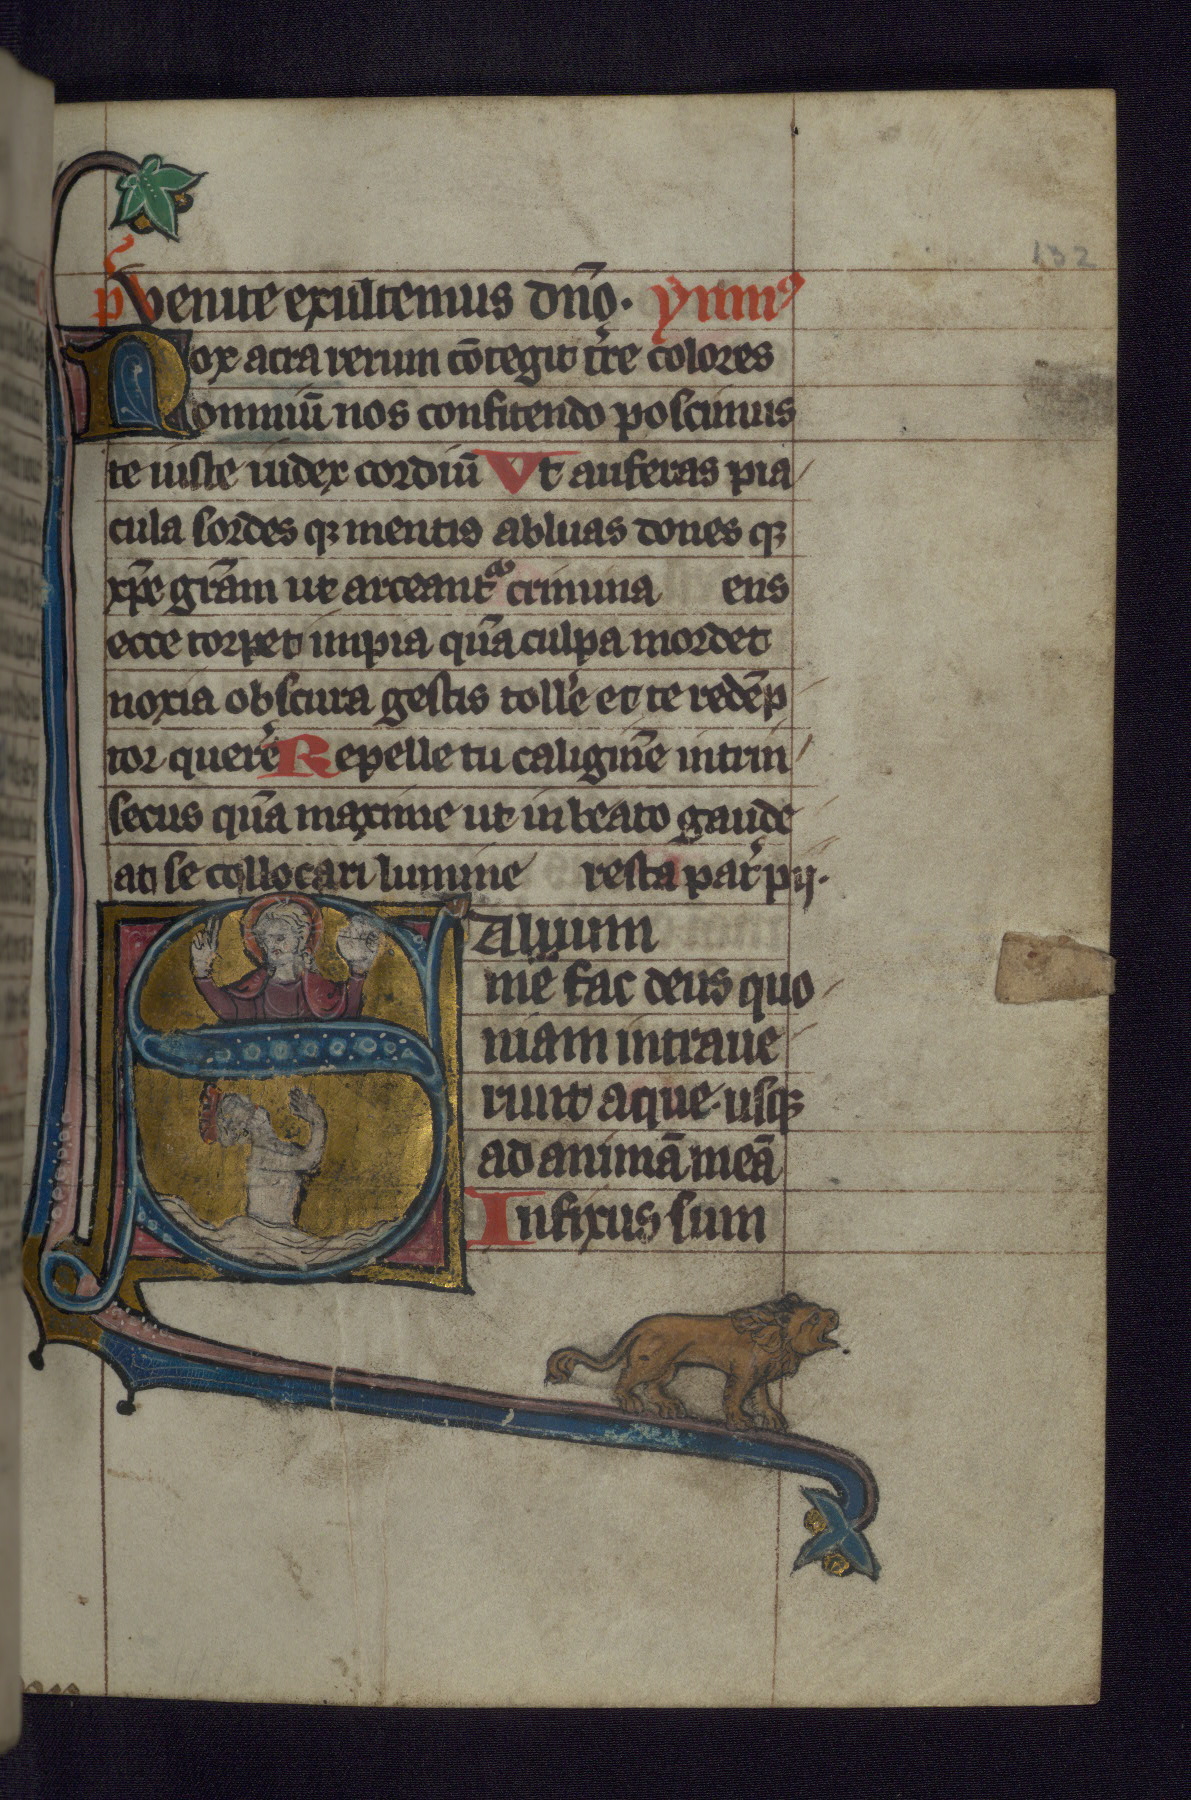 132
p̄s Venite exultemus dn̄o. ymn9
Nox atra rerum cōtegit t̄re colores
omniū nos confitendo poscimus
te iuste iudex cordiū Vt auferas pia
cula sordesqꝫ mentis abluas donesqꝫ
xp̄e gr̄am ut arceant̄ crimina ens
ecce torpet impia qūa culpa mordet
noxia obscura gestis tolle̓ et te redēp
tor quere̓ Repelle tu caligine̅ intrin
secus qūa maxime ut in beato gaude
at se collocari lumine resta pat̓ pij.
Saluum
mē fac deus quo
niam intraue
runt aque. usqꝫ
ad animā meā
Infixus sum